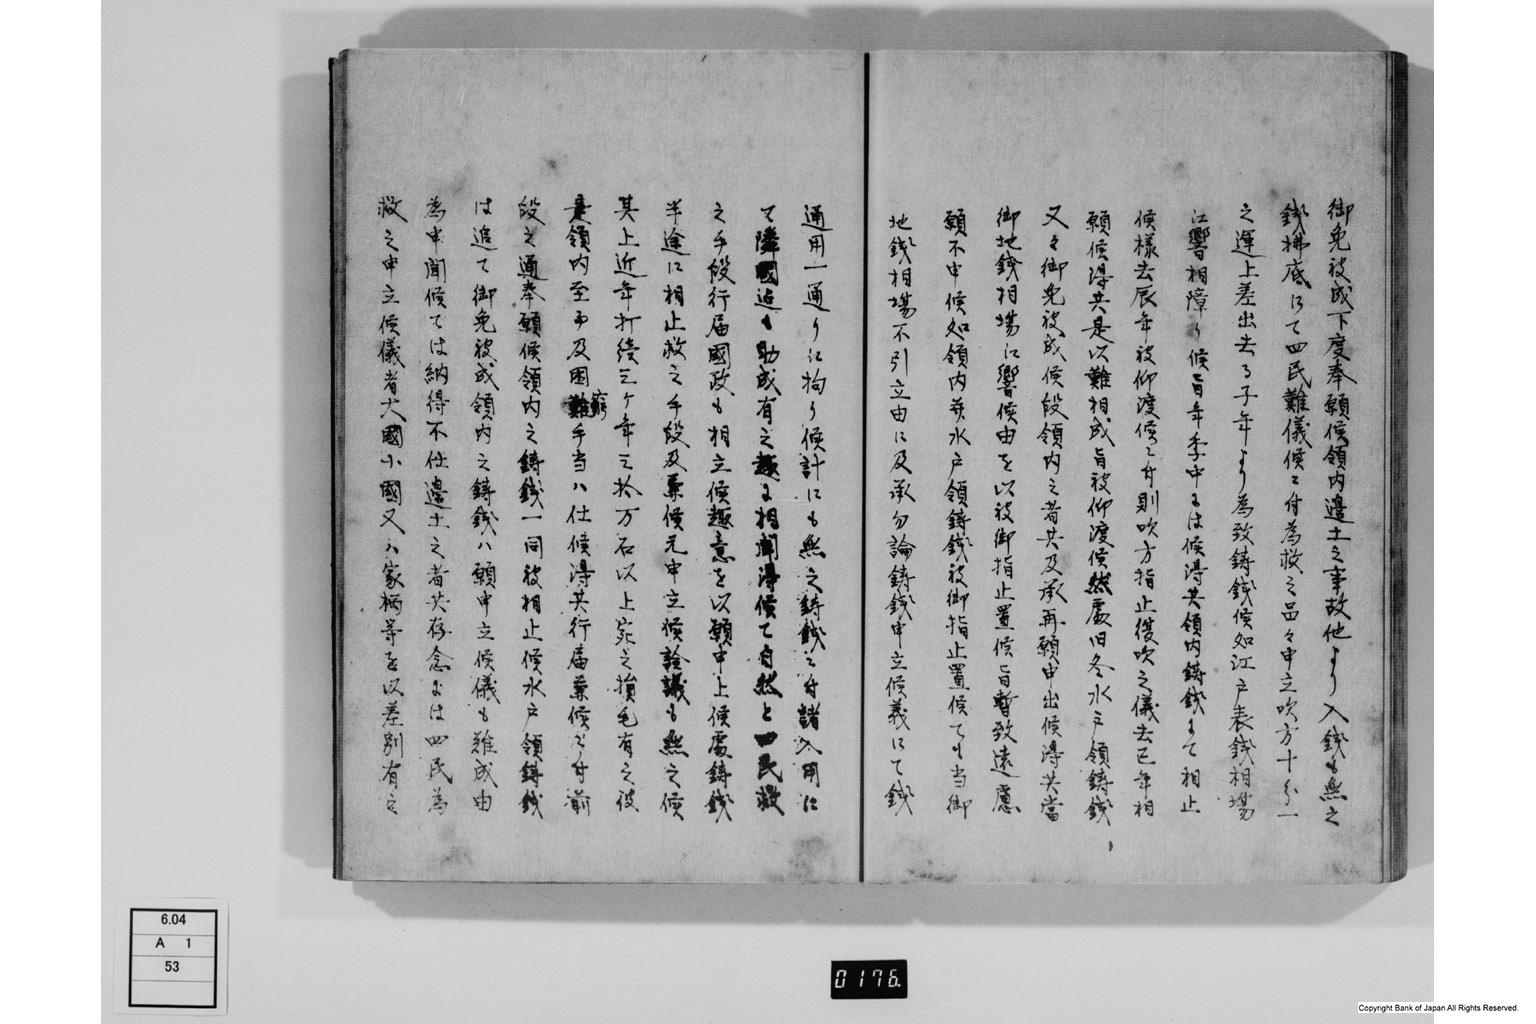 御免被成下度奉願候領内邊土之事故他より入錢も無之
錢拂底にて四民難儀候ニ付為救之品々申立吹方十分一
之運上差出去る子年より為致鋳錢候如江戸表錢相場
江響相障り候旨年季中には候得共領内鋳錢まて相止
候様去辰年被仰渡候ニ付則吹方指止復吹之儀去巳年相
願候得共是以難相成旨被仰渡候然處旧冬水戸領鋳錢
又々御免被成候段領内之者共及承再願申出候得共當
御地錢相場江響候由を以被御指止置候旨暫致遠慮
願不申候如領内并水戸領鋳錢被御指止置候ても当御
地錢相場不引立由に及承勿論鋳錢申立候義にて錢
通用一通りに拘り候計にも無之鋳錢之付諸入用に
て隣國迄も助成有之趣に相聞得候て自然と四民救
之手段行届國政も相立候趣意を以願申上候處鋳錢
半途に相止救之手段及棄候元申立候詮議も無之候
其上近年打続三ヶ年三拾万石以上宛之損毛有之彼
是領内至而及困難手当ハ仕候得共行届兼候ニ付前
窮
段之通奉願候領内之鋳錢一同被相止候水戸領鋳錢
は追て御免被成領内之鋳錢ハ願申立候儀も難成由
為申聞候ては納得不仕邊土之者共存念には四民為
救之申立候儀者大國小國又ハ家柄等を以差別有之
6.04
A 1
53
0176.
Copyright Bank of Japan All Rights Reserved.